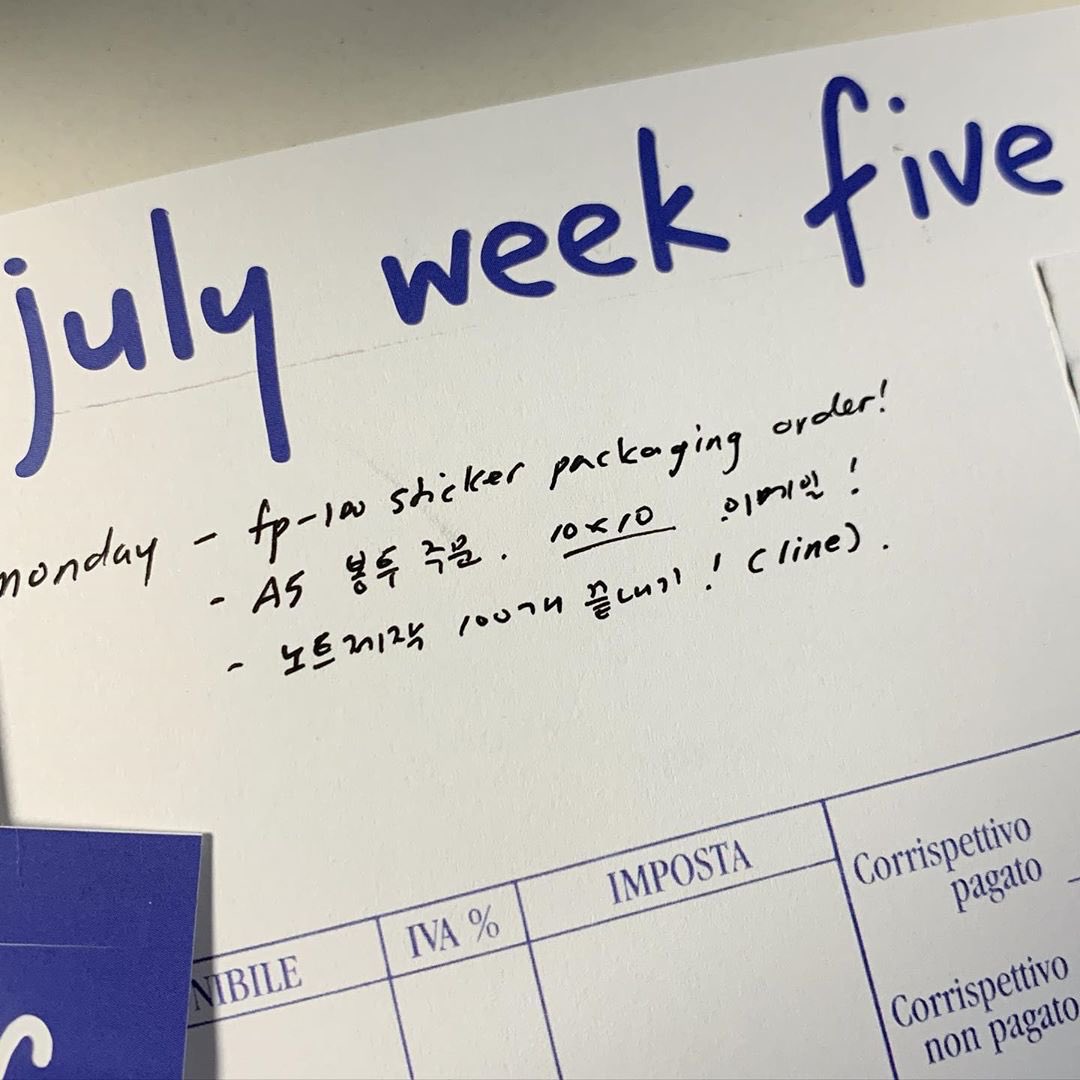 july week five
monday - fp-100 sticker packaging order!
- A5 봉투 주문. 10x10 이메일!
- 노트제작 100개 끝내기! (line).
NIBILE
IVA %
IMPOSTA
Corrispettivo
pagato
Corrispettivo
non pagato